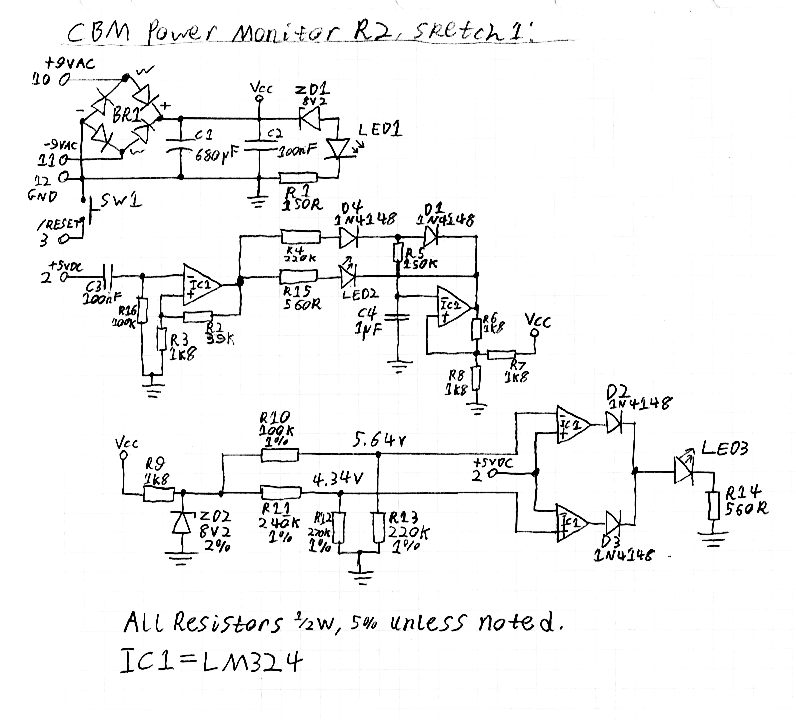 CBM Power Monitor R2, sketch1:
+9VAC
10
W
BR1
-
+
W
-9VAC
11
12
GND
C1
680µF
Vcc
C2
100nF
ZD1
8V2
LED1
R1
150R
SW1
/RESET
3
2
+5VDC
C3
100nF
R16
100K
-
+
IC1
R3
1K8
R2
39K
R4
220K
D4
1N4148
D1
1N4148
R5
150K
R15
560R
LED2
C4
1µF
-
+
IC1
R6
1K8
Vcc
R7
1K8
R8
1K8
Vcc
R9
1K8
ZD2
8V2
2%
R10
100K
1%
5.64V
4.34V
R11
240K
1%
R12
220K
1%
R13
220K
1%
+5VDC
2
-
+
IC1
-
+
IC1
D2
1N4148
D3
1N4148
LED3
R14
560R
All Resistors 1/2W, 5% unless noted.
IC1=LM324